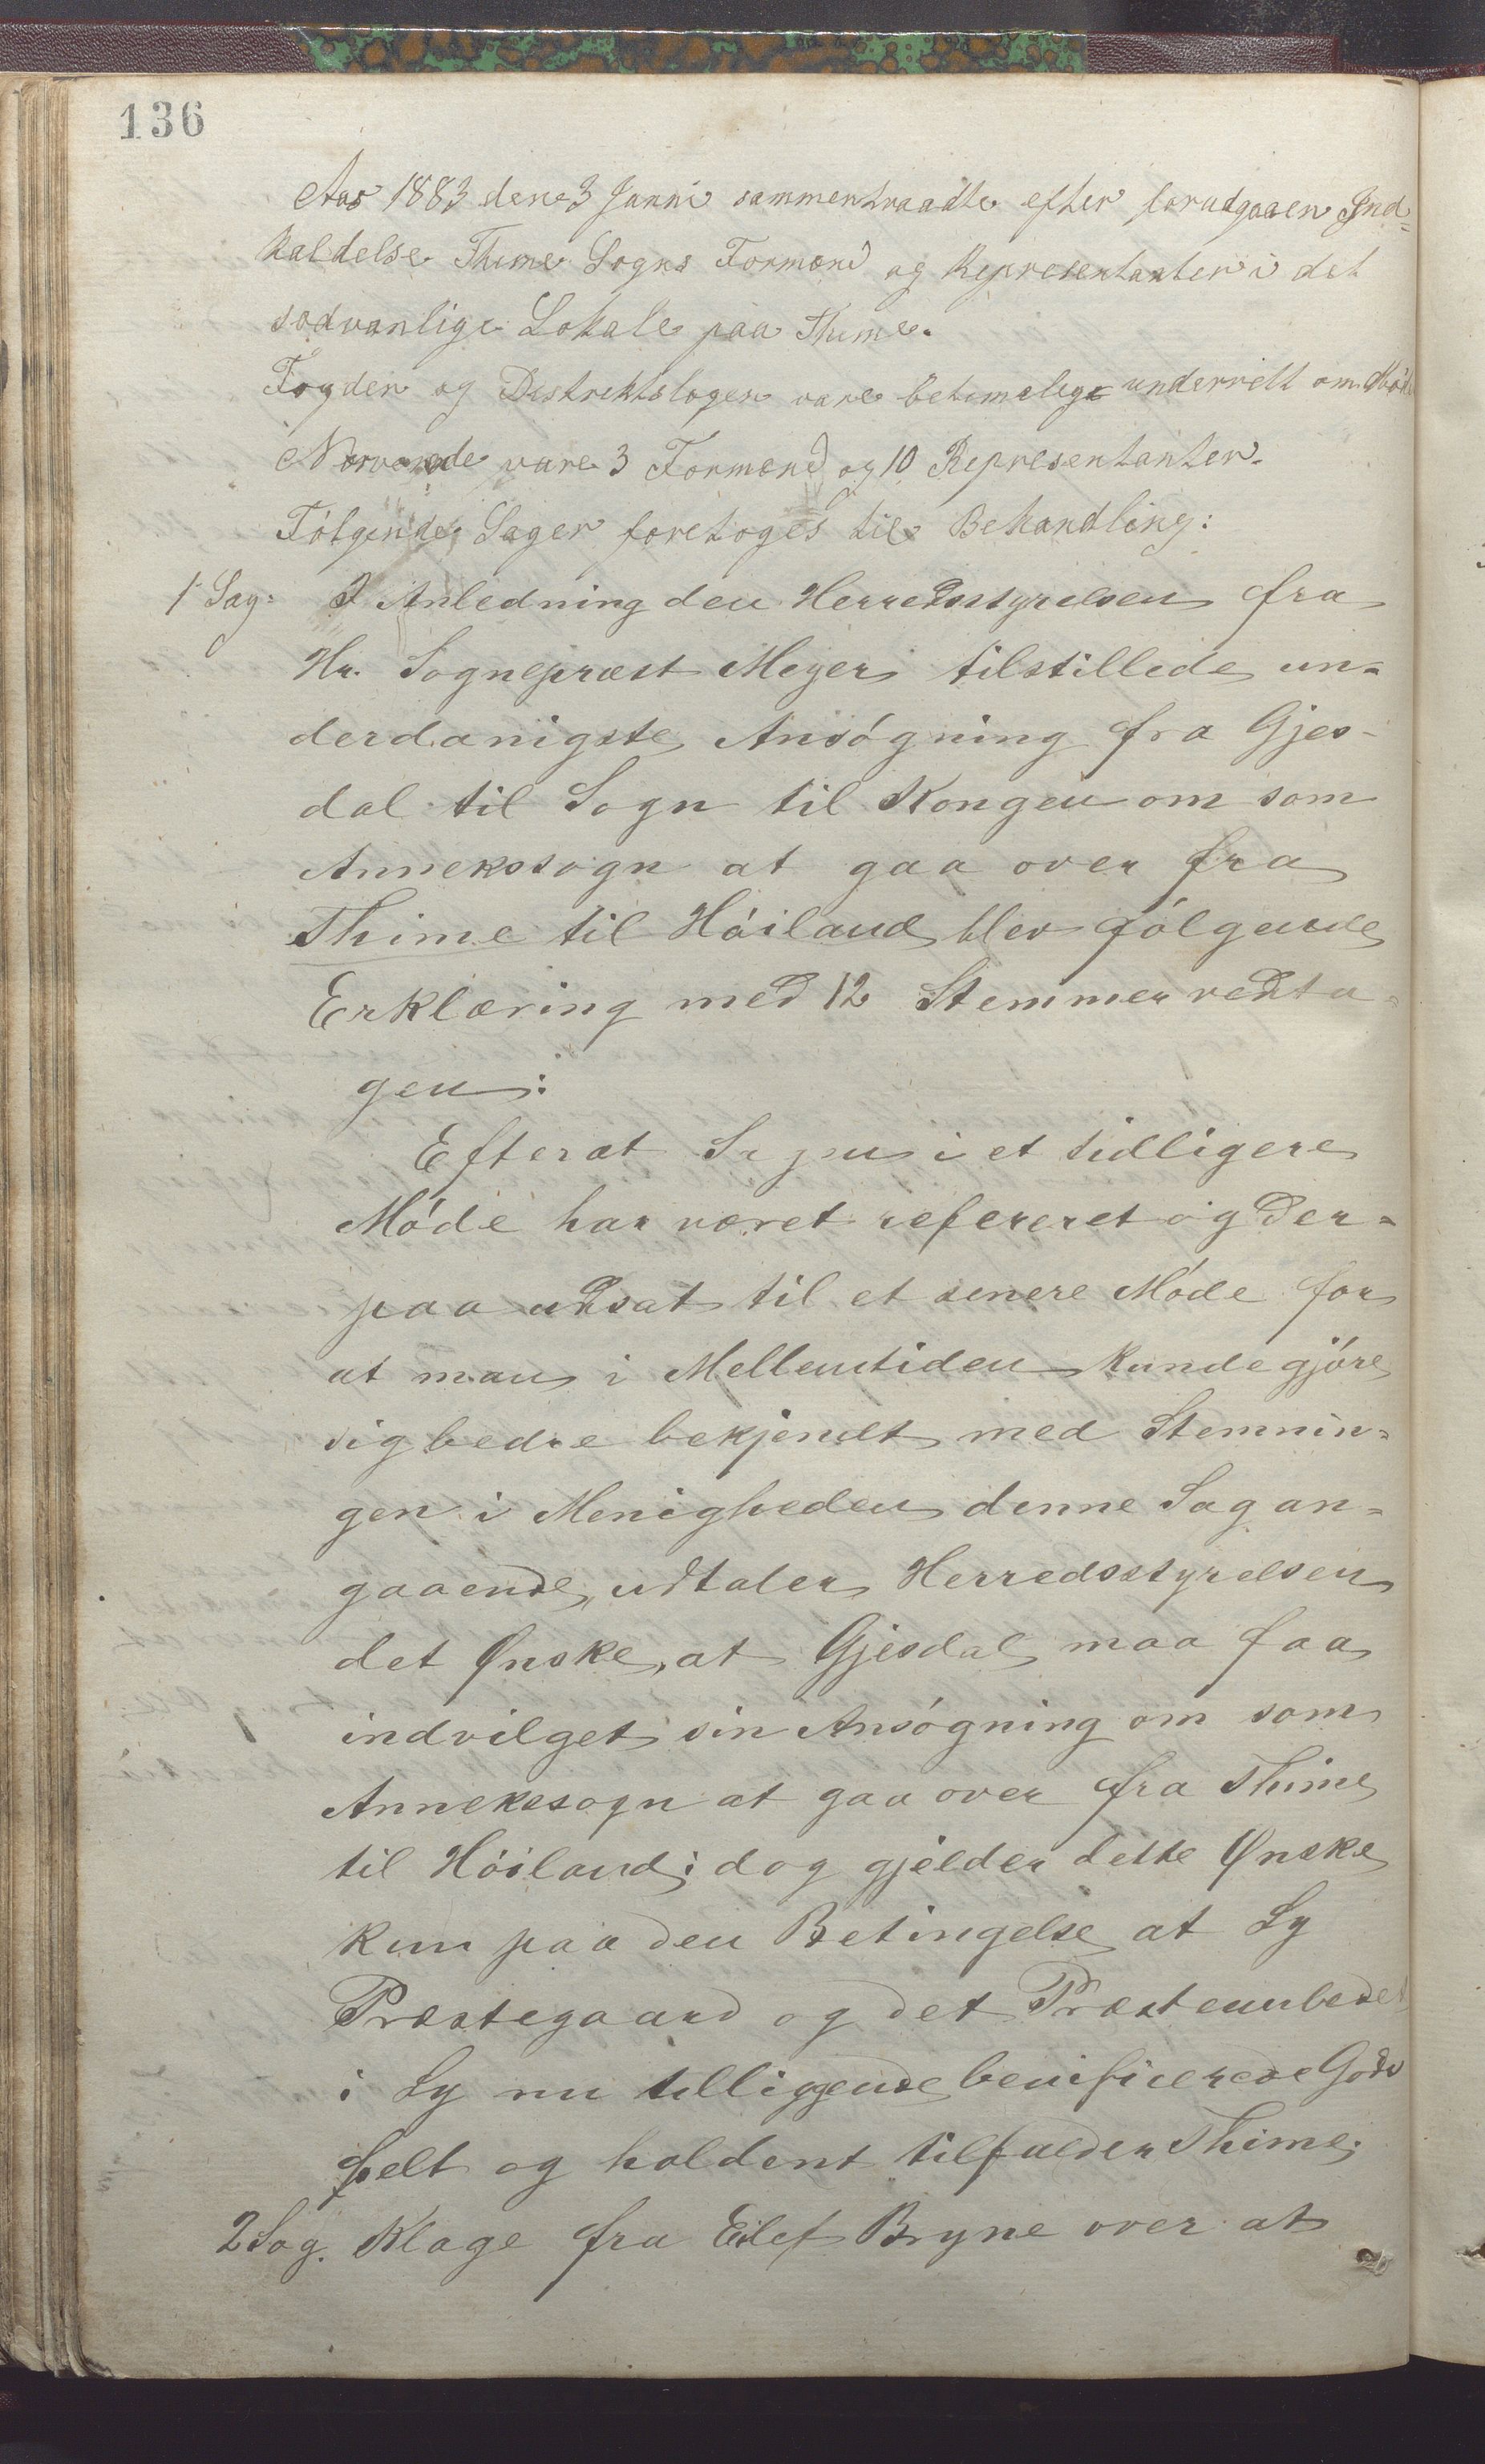 136
Aar 1883 den 3 Junni sammentraadte efter forudgaaen Ind=
kaldelse Thime Sogns Formænd og Representanter i det
sædvanlige Lokale paa Thime.
Fogden og Distriktslægen vare betimelige underrett om Møde
Nærværede vare 3 Formænd og 10 Representanter.
Følgende Sager foretoges til Behandling:
1 Sag: I Anledning den Herredsstyrelsen fra
Hr. Sognepræst Meyer tilstillede un=
derdanigste Ansøgning fra Gjes-
dal til Sogn til Kongen om som
Annekssogn at gaa over fra
Thime til Høiland blev følgende
Erklæring med 12 Stemmer vedta=
gen:
Efterat Sagen i et tidligere
Møde har været refereret og der=
paa udsat til et senere Møde for
at man i Mellemtiden kunde gjøre
sig bedre bekjendt med Stemnin=
gen i Menigheden denne Sag an=
gaaende, udtaler Herredsstyrelsen
det Ønske, at Gjesdal maa faa
indvilget sin Ansøgning om som
Annekssogn at gaa over fra Thime
til Høiland; dog gjælder dette Ønske
kun paa den Betingelse at Ly
Præstegaard og det Præsteembedet
i Ly nu tilliggende benificerede Gods
helt og holdent tilfalder Thime.
2 Sag. Klage fra Eilef Bryne over at